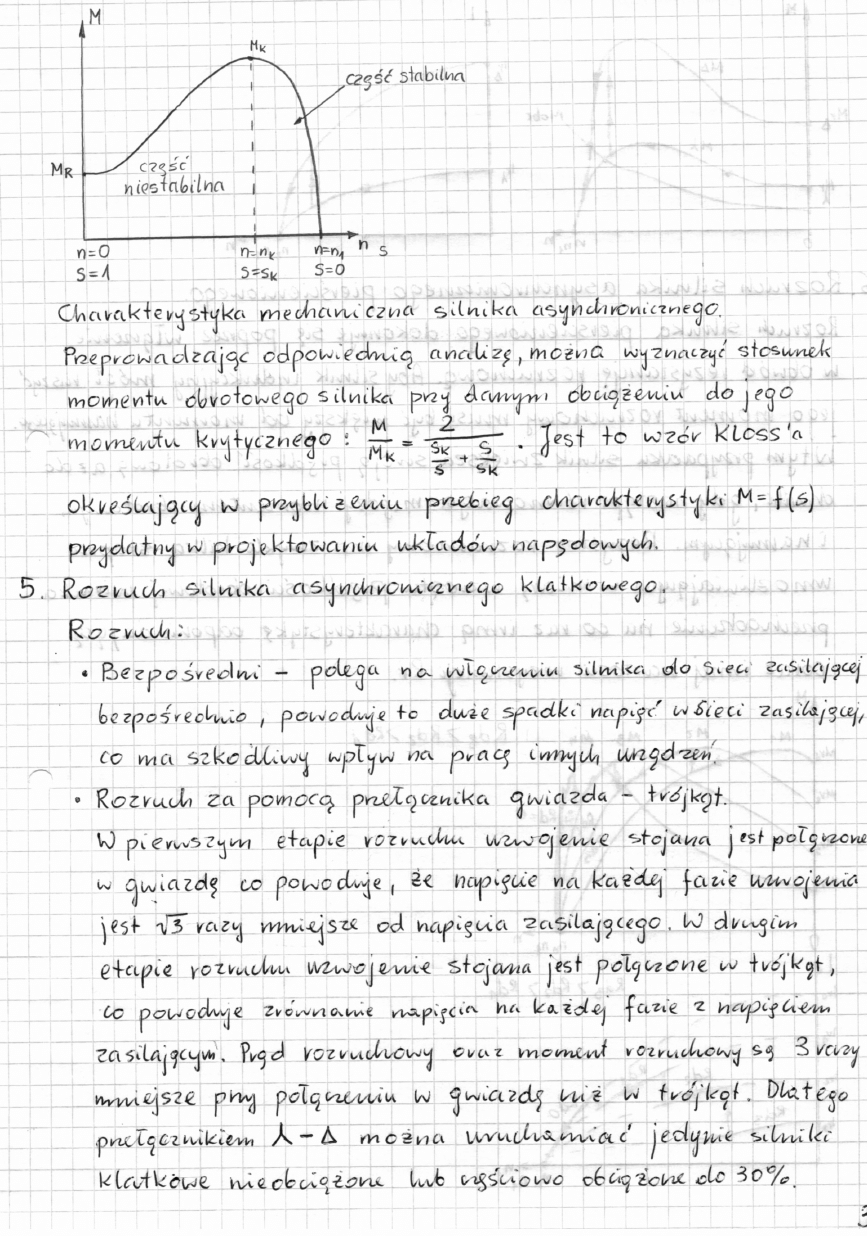 M
M_K
część stabilna
M_R
część
niestabilna
n=0
n=n_K
n=n_1
n s
S=1
S=S_K
S=0
Charakterystyka mechaniczna silnika asynchronicznego.
Przeprowadzając odpowiednią analizę, można wyznaczyć stosunek
momentu obrotowego silnika przy danym obciążeniu do jego
momentu krytycznego : M/M_K = 2/(S_K/S + S/S_K) . Jest to wzór Kloss'a
określający w przybliżeniu przebieg charakterystyki M=f(s)
przydatny w projektowaniu układów napędowych.
5. Rozruch silnika asynchronicznego klatkowego.
Rozruch:
• Bezpośredni – polega na włączeniu silnika do sieci zasilającej
bezpośrednio, powoduje to duże spadki napięć w sieci zasilającej,
co ma szkodliwy wpływ na pracę innych urządzeń.
• Rozruch za pomocą przełącznika gwiazda – trójkąt.
W pierwszym etapie rozruchu uzwojenie stojana jest połączone
w gwiazdę co powoduje, że napięcie na każdej fazie uzwojenia
jest √3 razy mniejsze od napięcia zasilającego. W drugim
etapie rozruchu uzwojenie stojana jest połączone w trójkąt,
co powoduje zrównanie napięcia na każdej fazie z napięciem
zasilającym. Prąd rozruchowy oraz moment rozruchowy są 3 razy
mniejsze przy połączeniu w gwiazdę niż w trójkąt. Dlatego
przełącznikiem ⅄ – Δ można uruchamiać jedynie silniki
klatkowe nieobciążone lub częściowo obciążone do 30%.
3